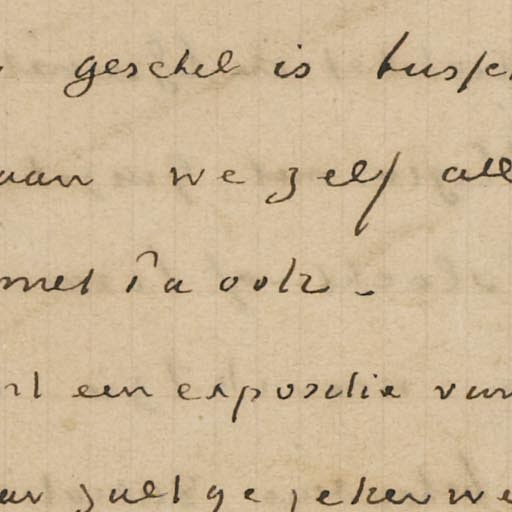 geschil is tussch
aan we zelf all
met Pa ook -
een expositie van
zult ge zeker we